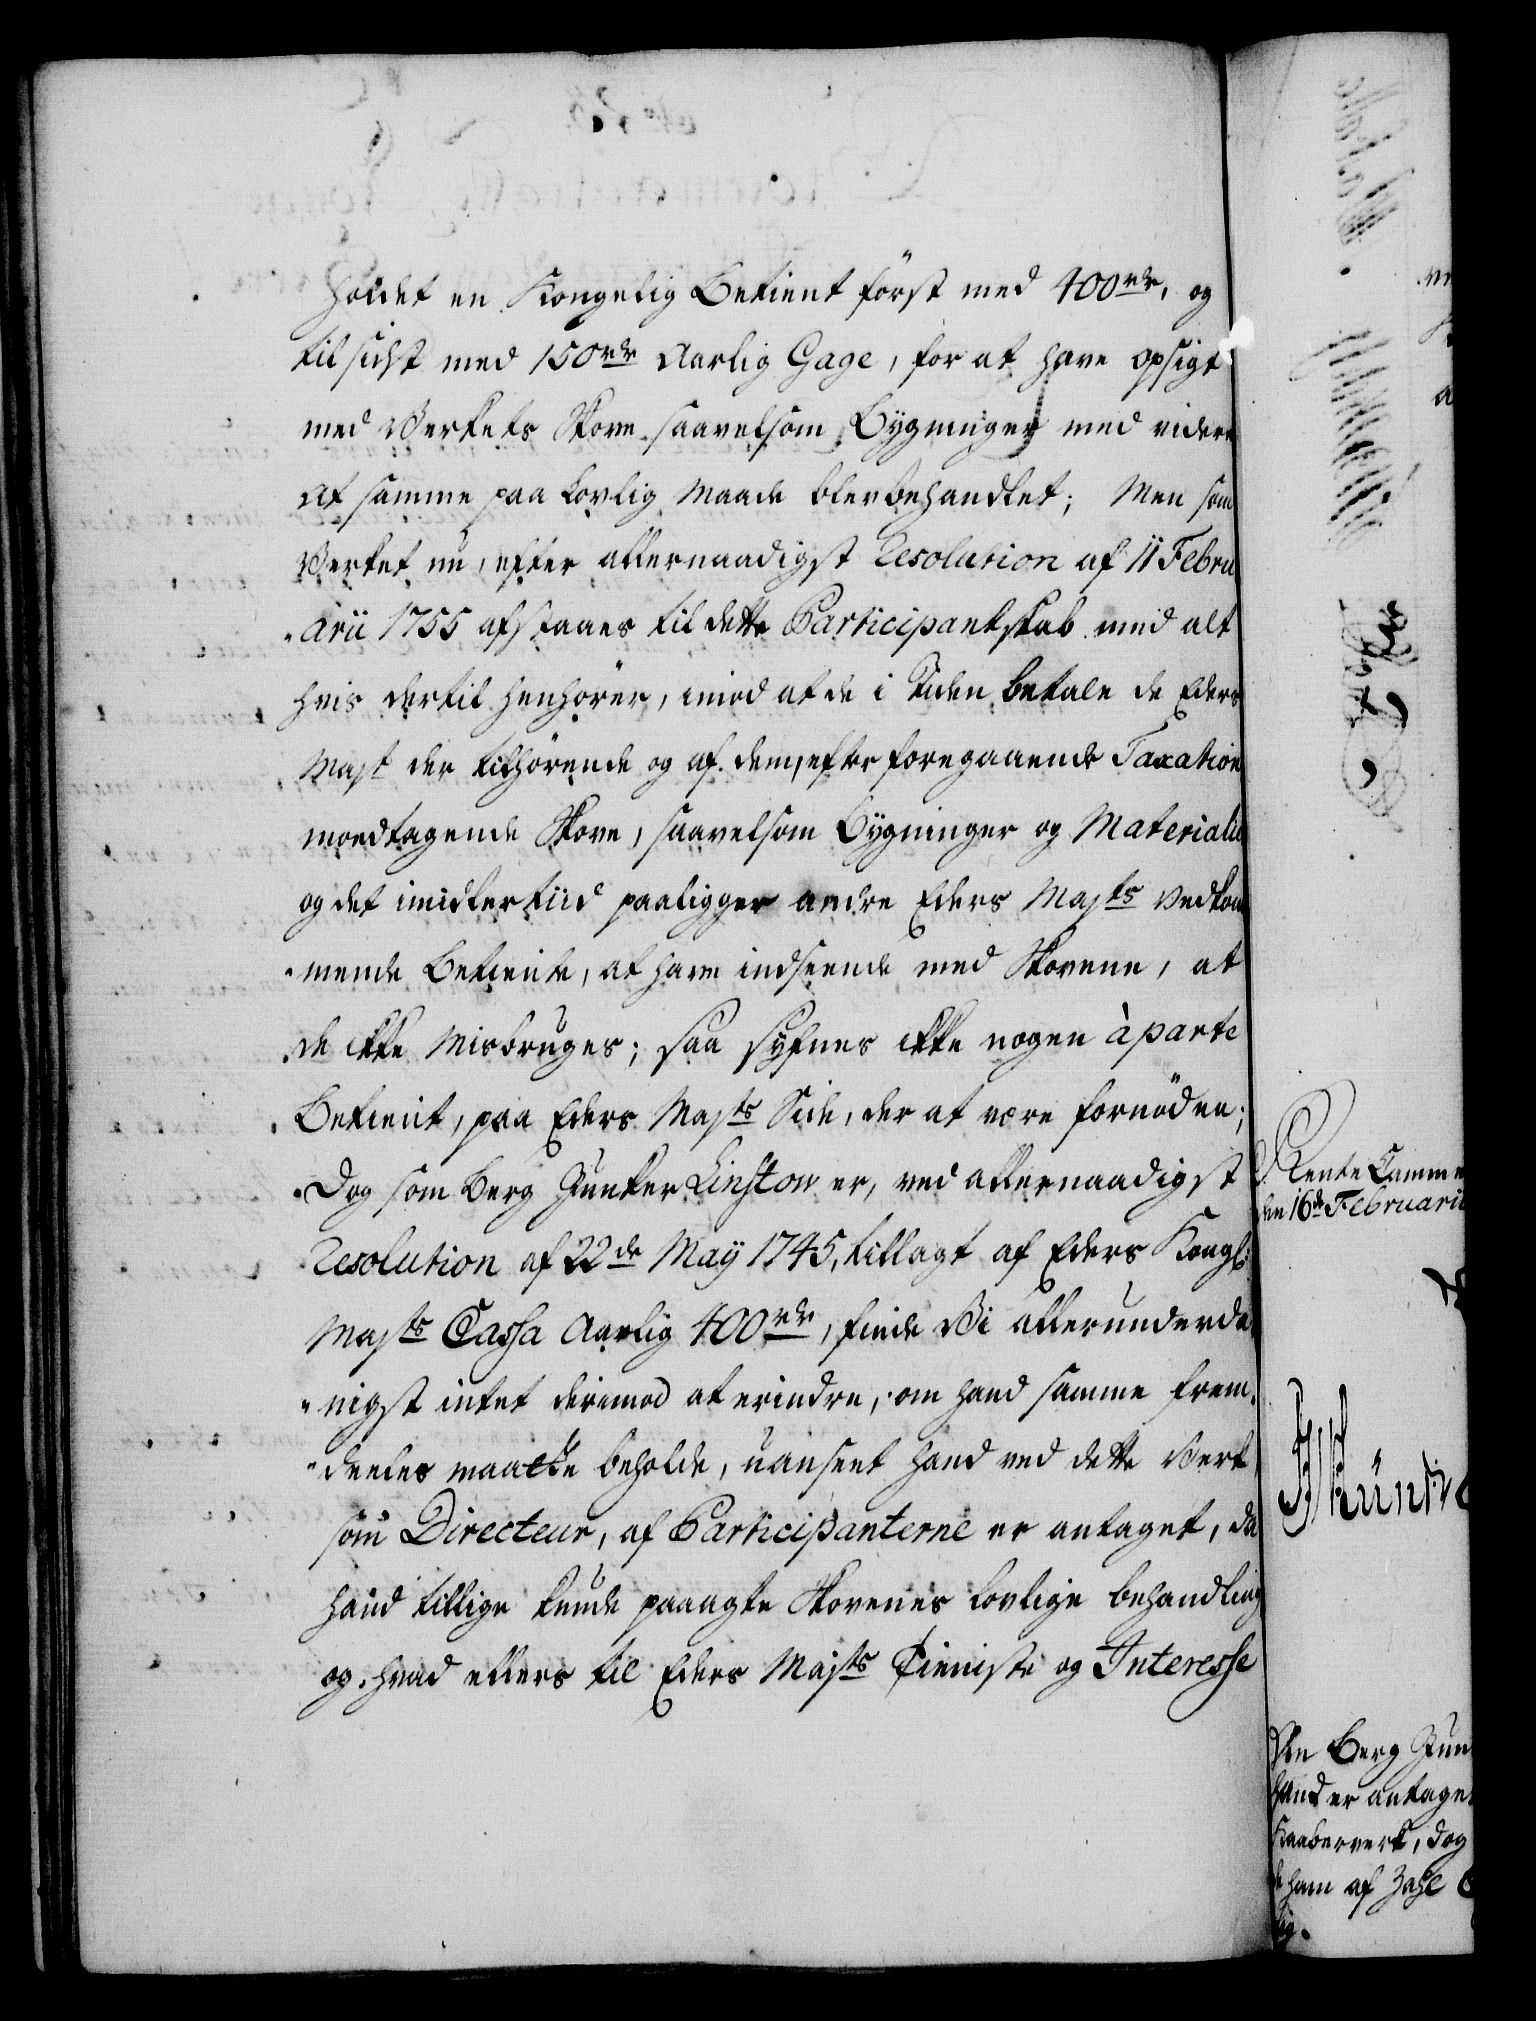 holdet en Kongelig Betient först med 400 rdr, og
til sidst med 150 rdr Aarlig Gage, for at have opsigt
med Verkets Skove saavelsom Bygninger med videre
at samme paa lovlig Maade blev behandlet; Men som
Verket nu, efter allernaadigst Resolution af 11 Febru-
arii 1755 afstaaes til dette Participantskab med alt
hvis dertil henhörer, imod at de i Tiden betale de Eders
Mayt der tilhörende og af dem, efter foregaaende Taxation
modtagende Skove, saavelsom Bygninger og Materialie
og det imidlertiid paaligger andre Eders Mayts Vedkom-
mende Betiente, at have indseende med Skovene, at
de ikke Misbruges; saa syfnes ikke nogen à parte
Betient, paa Eders Mayts Side, der at være fornöden;
Dog som Berg Junker Linstow er, ved allernaadigst
Resolution af 22de May 1745, tillagt af Eders Kongl:
Mayts Cassa Aarlig 400 rdr, finde Vi allerunderda-
nigst intet derimod at erindre, om hand samme frem-
deeles maatte beholde, uanseet hand ved dette Verk
som Directeur, af Participanterne er antaget, da
hand tillige kunde paaagte Skovenes lovlige behandling
og hvad ellers til Eders Mayts Tieniste og Interesse
Rente Camme
den 16de Februarii
Von Berg Jun
hand er antaget
Kaaberverk, dog
ham af Zahl